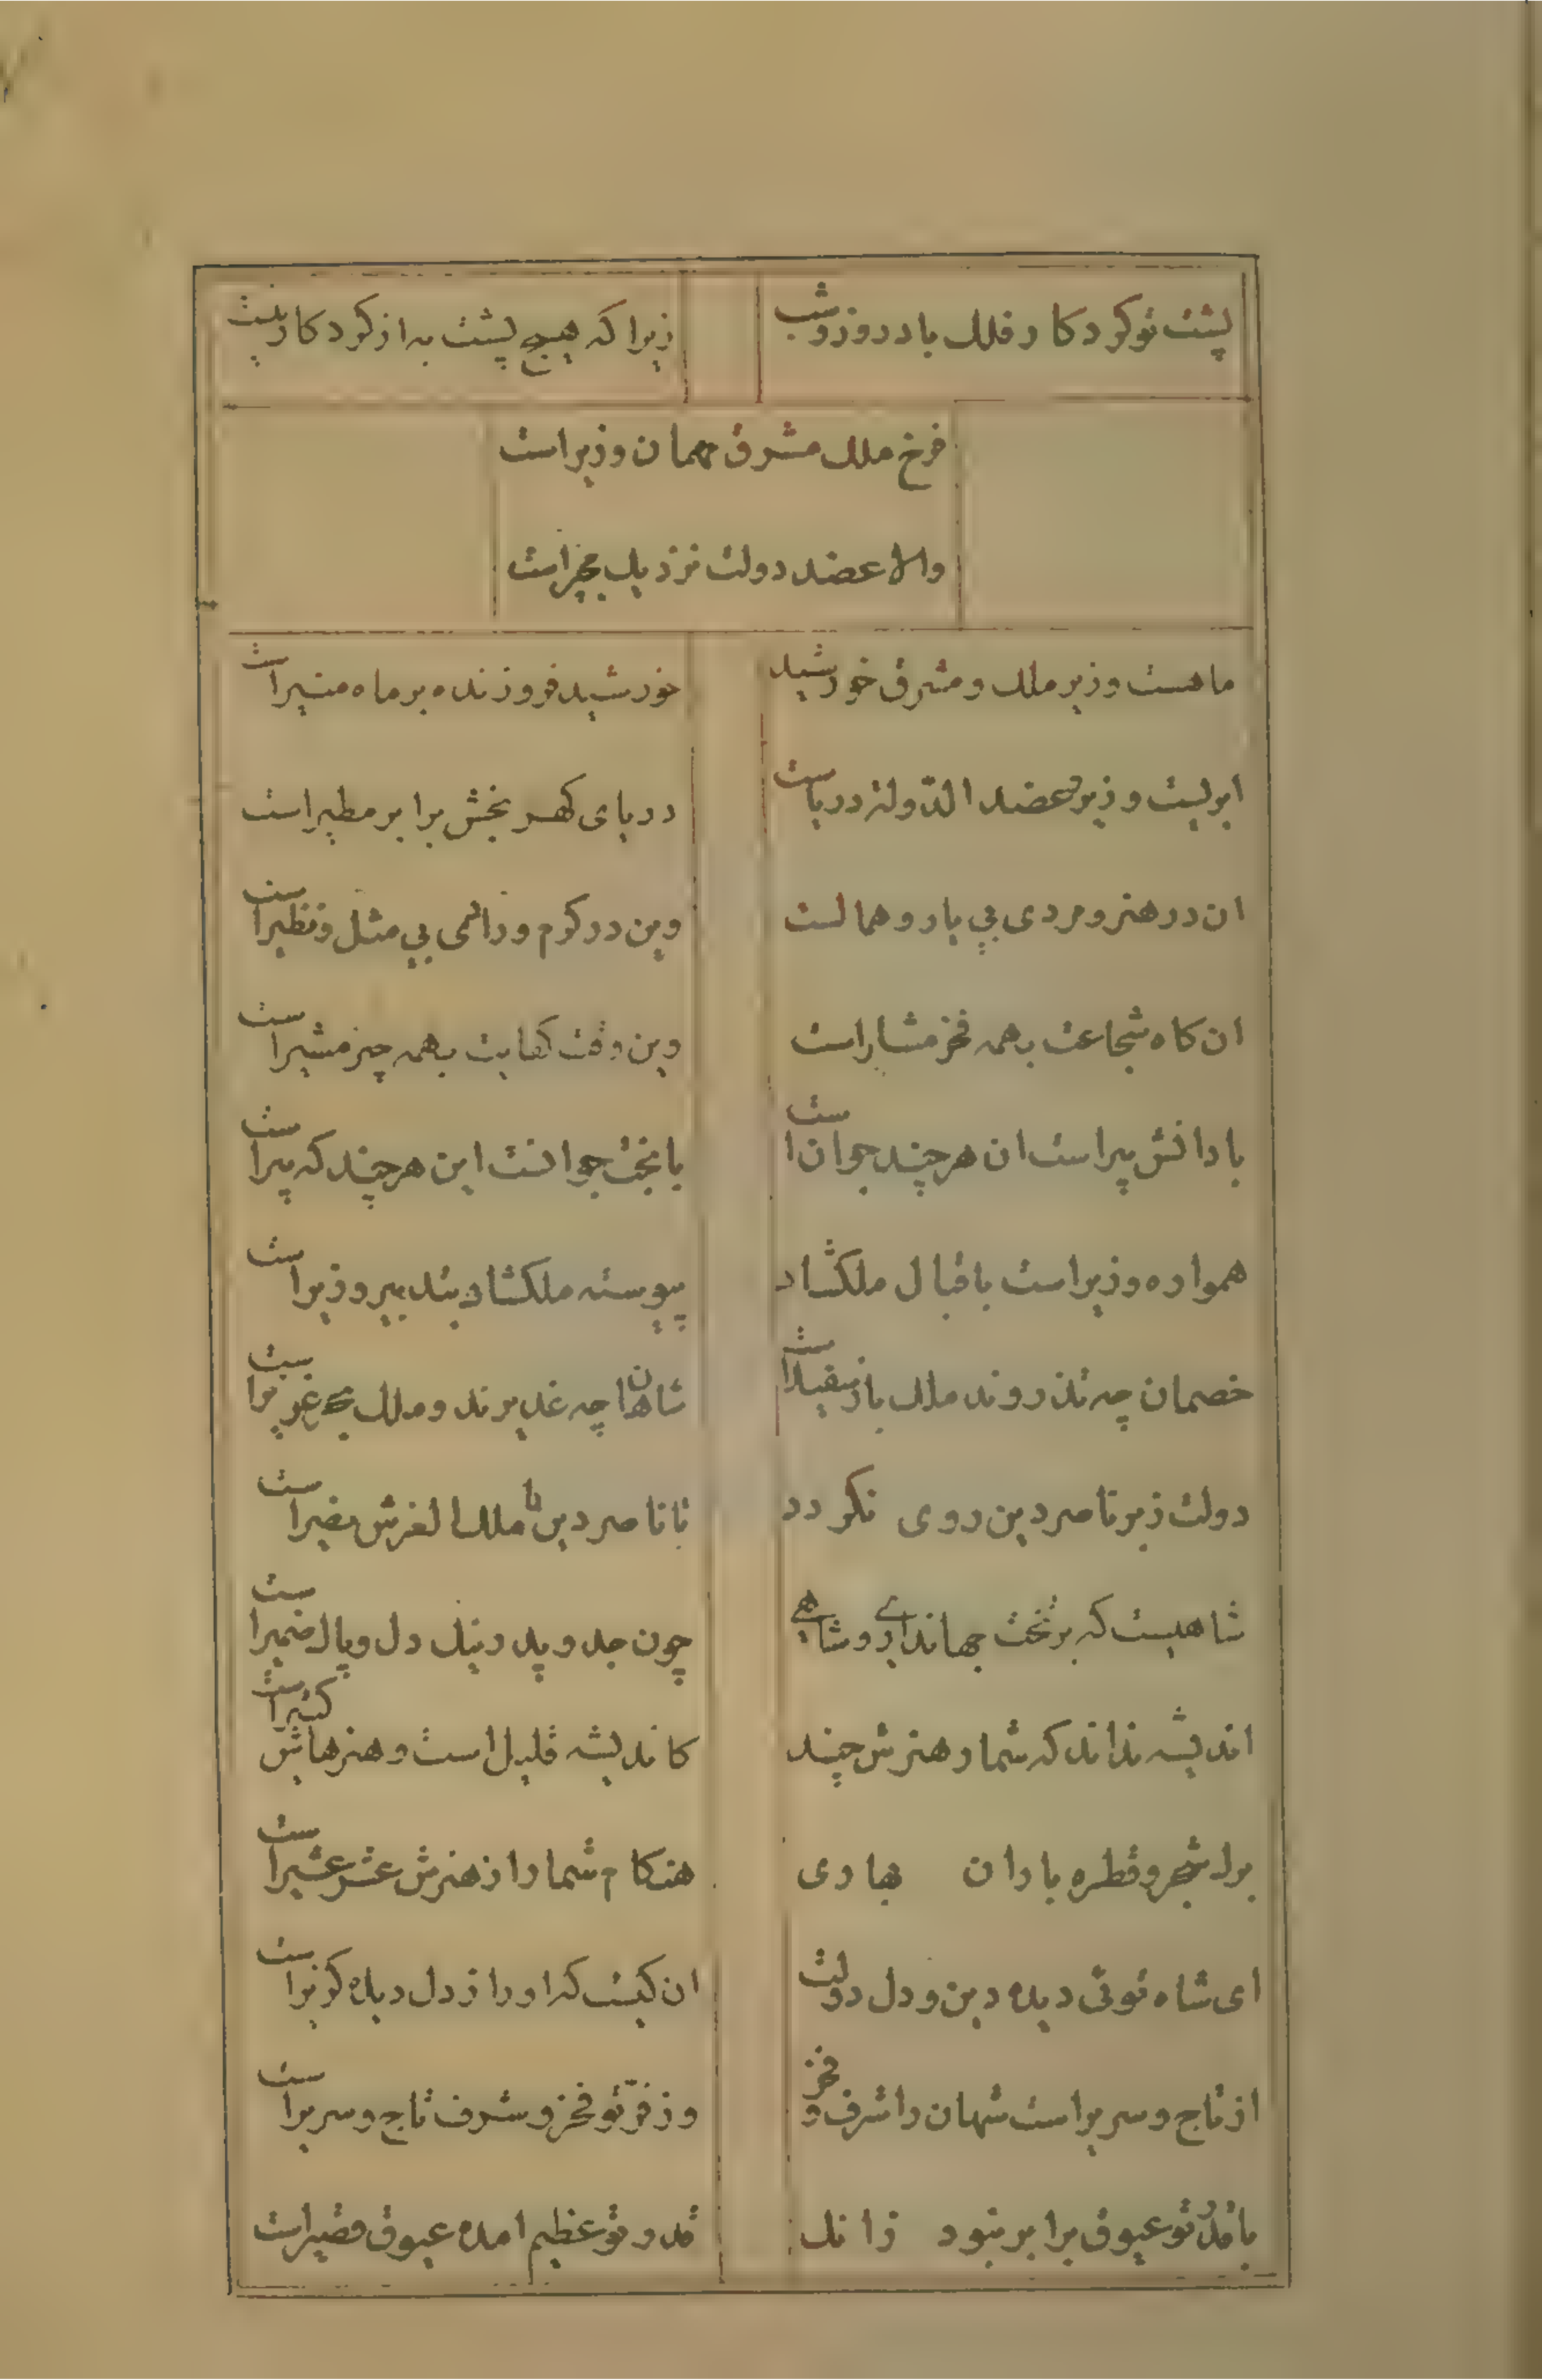 پشت تو کردکار فلک باد روز و شب
زیرا که هیچ پشت به از کردکار نیست
فرخ ملک مشرق مهمان وزیر است
والا عضد دولت نزدیک مجیر است
ماهست وزیر ملک و مشرق خورشید
خورشید فروزنده بر ماه منیر است
ابریست وزیر و عضد الدّولة دریاست
دریای کهر بخش برابر مطیر است
ان در هنر و مردی بی یار و همالست
وین در کرم و رادی بی مثل و نظیر است
ان کاه شجاعت بهمه فخر مشار است
وین وقت کفایت بهمه چیز مشیر است
با دانش پیر است ان هر چند جوان است
با بخت جوانست این هر چند که پیر است
همواره وزیر است باقبال ملکشاد
پیوسته ملکشاد بتدبیر وزیر است
خصمان چه تذروند ملک باز سفید است
شاهان چه غدیرند و ملک بحر غزیر است
دولت ز بر ناصر دین روی نکردد
تا ناصر دین با ملک العرش نصیر است
شاهیست که بر تخت جهانداری و شاهی
چون جد و پدر نیک دل و پاک ضمیر است
اندیشه نداند که شمار هنرش چند
کاندیشه قلیل است و هنرهاش کثیر است
برک شجر و قطره باران بهاری
هنکام شمار از هنرش عشر عشیر است
ای شاه توئی دیده دین و دل دولت
ان کیست که او را ز دل دیده کزیر است
از تاج و سریر است شهان را شرف و فخر
وز فرّ تو فخر و شرف تاج و سریر است
با قدر تو عیوق برابر نبود زانک
قدر تو عظیم امده عیوق قصیر است